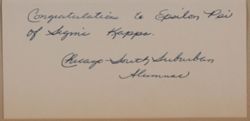 Congratulations to Epsilon Psi
of Sigma Kappa.
Chicago South Suburban
Alumnae